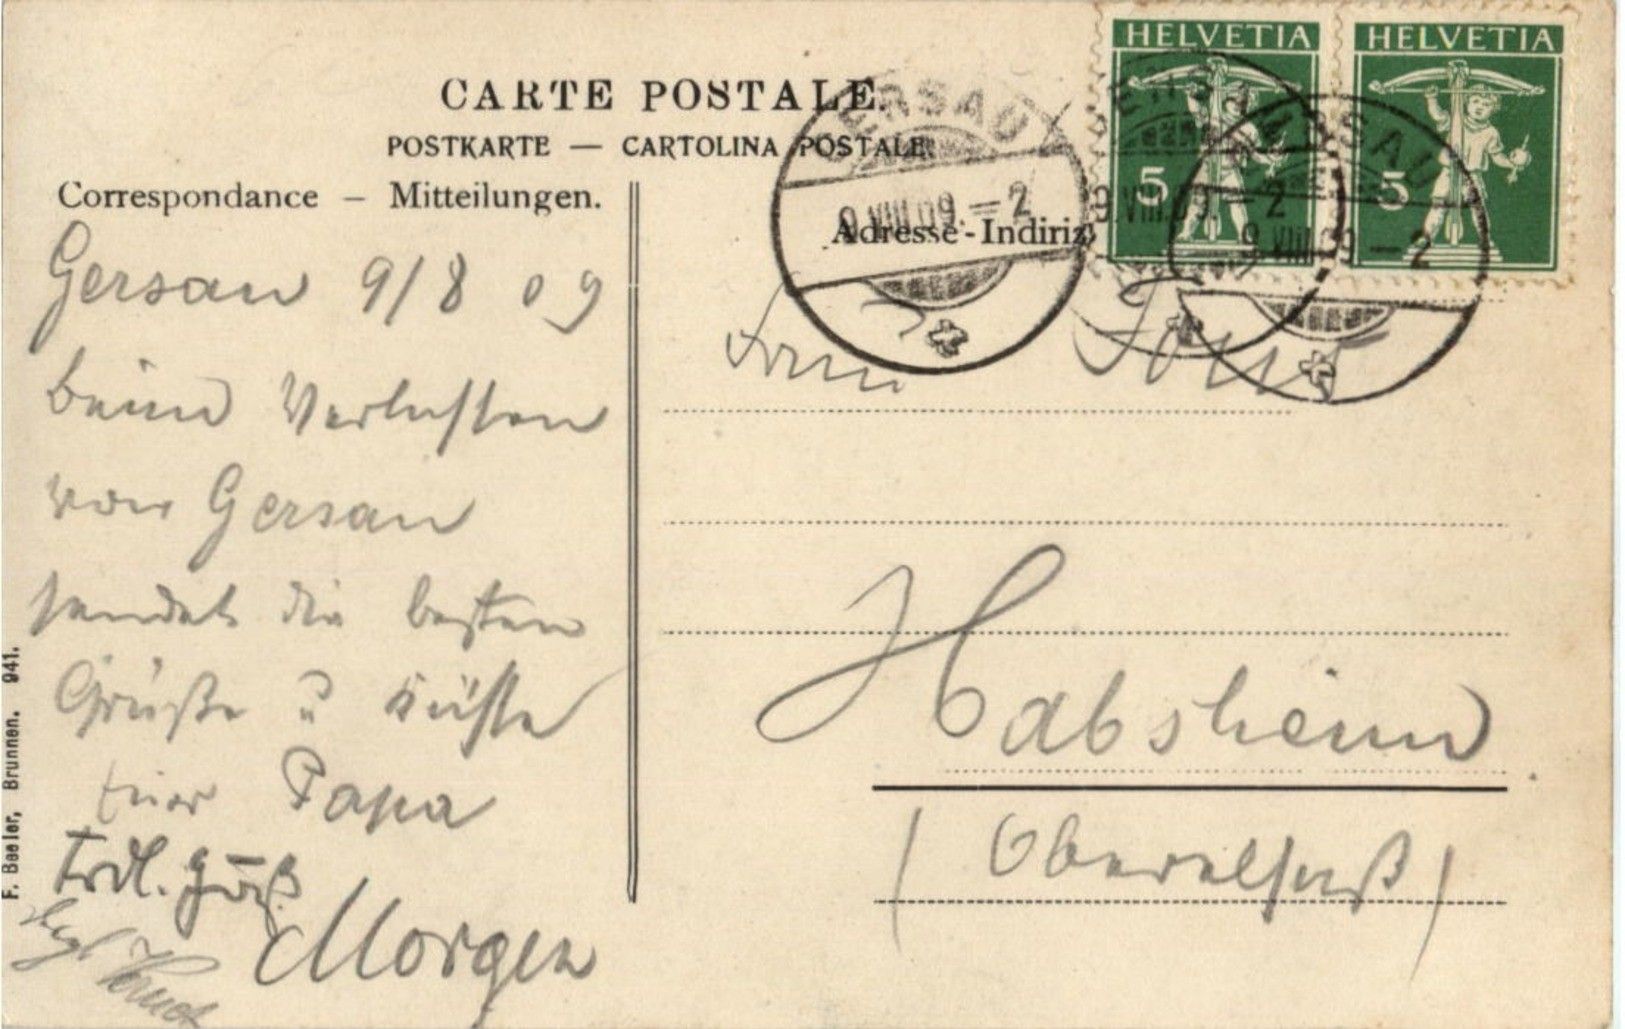 CARTE POSTALE.
POSTKARTE — CARTOLINA POSTALE.
Correspondance — Mitteilungen.
Adresse - Indiriz
HELVETIA
5
HELVETIA
5
GERSAU
9.VIII.09.—2
9.VIII.09.—2
GERSAU
9.VIII.09.—2
Gersau 9/8 09
beim Verlassen
von Gersau
sendet die besten
Grüße u Küsse
Euer Papa
Frdl. Gruß
Morgen
Frau
Habsheim
(Oberelsaß)
F. Beeler, Brunnen. 941.